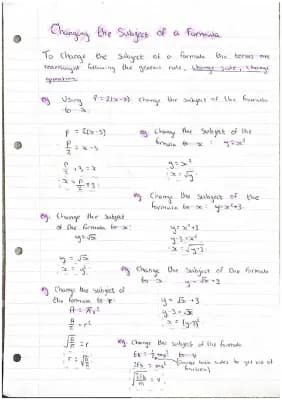 Changing the Subject of a Formula
To change the subject of a formula the terms are
rearranged following the general rule, change side, change
operation.
eg Using P=2(x-3) change the subject of the formula
to x.
P = 2(x-3)
P/2 = x-3
P/2 + 3 = x
x = P/2 + 3
eg. Change the subject of the
formula to x : y=x²
y=x²
x=√y
eg Change the subject of the
formula to x: y=x²+3.
y=x²+3
y-3=x²
x=√y-3
eg. Change the subject
of the formula to x:
y=√x
y = √x
x = y²
eg Change the subject of the formula
to x y=√x+3
y = √x +3
y-3=√x
x = (y-3)²
eg Change the subject of
the formula to r:
A = πr²
A/π = r²
√A/π = r
r = √A/π
eg. Change the subject of the formula
Ek = ½mv² to v
2Ek = mv² (Square both sides to get rid of
fraction)
√2Ek/m = v